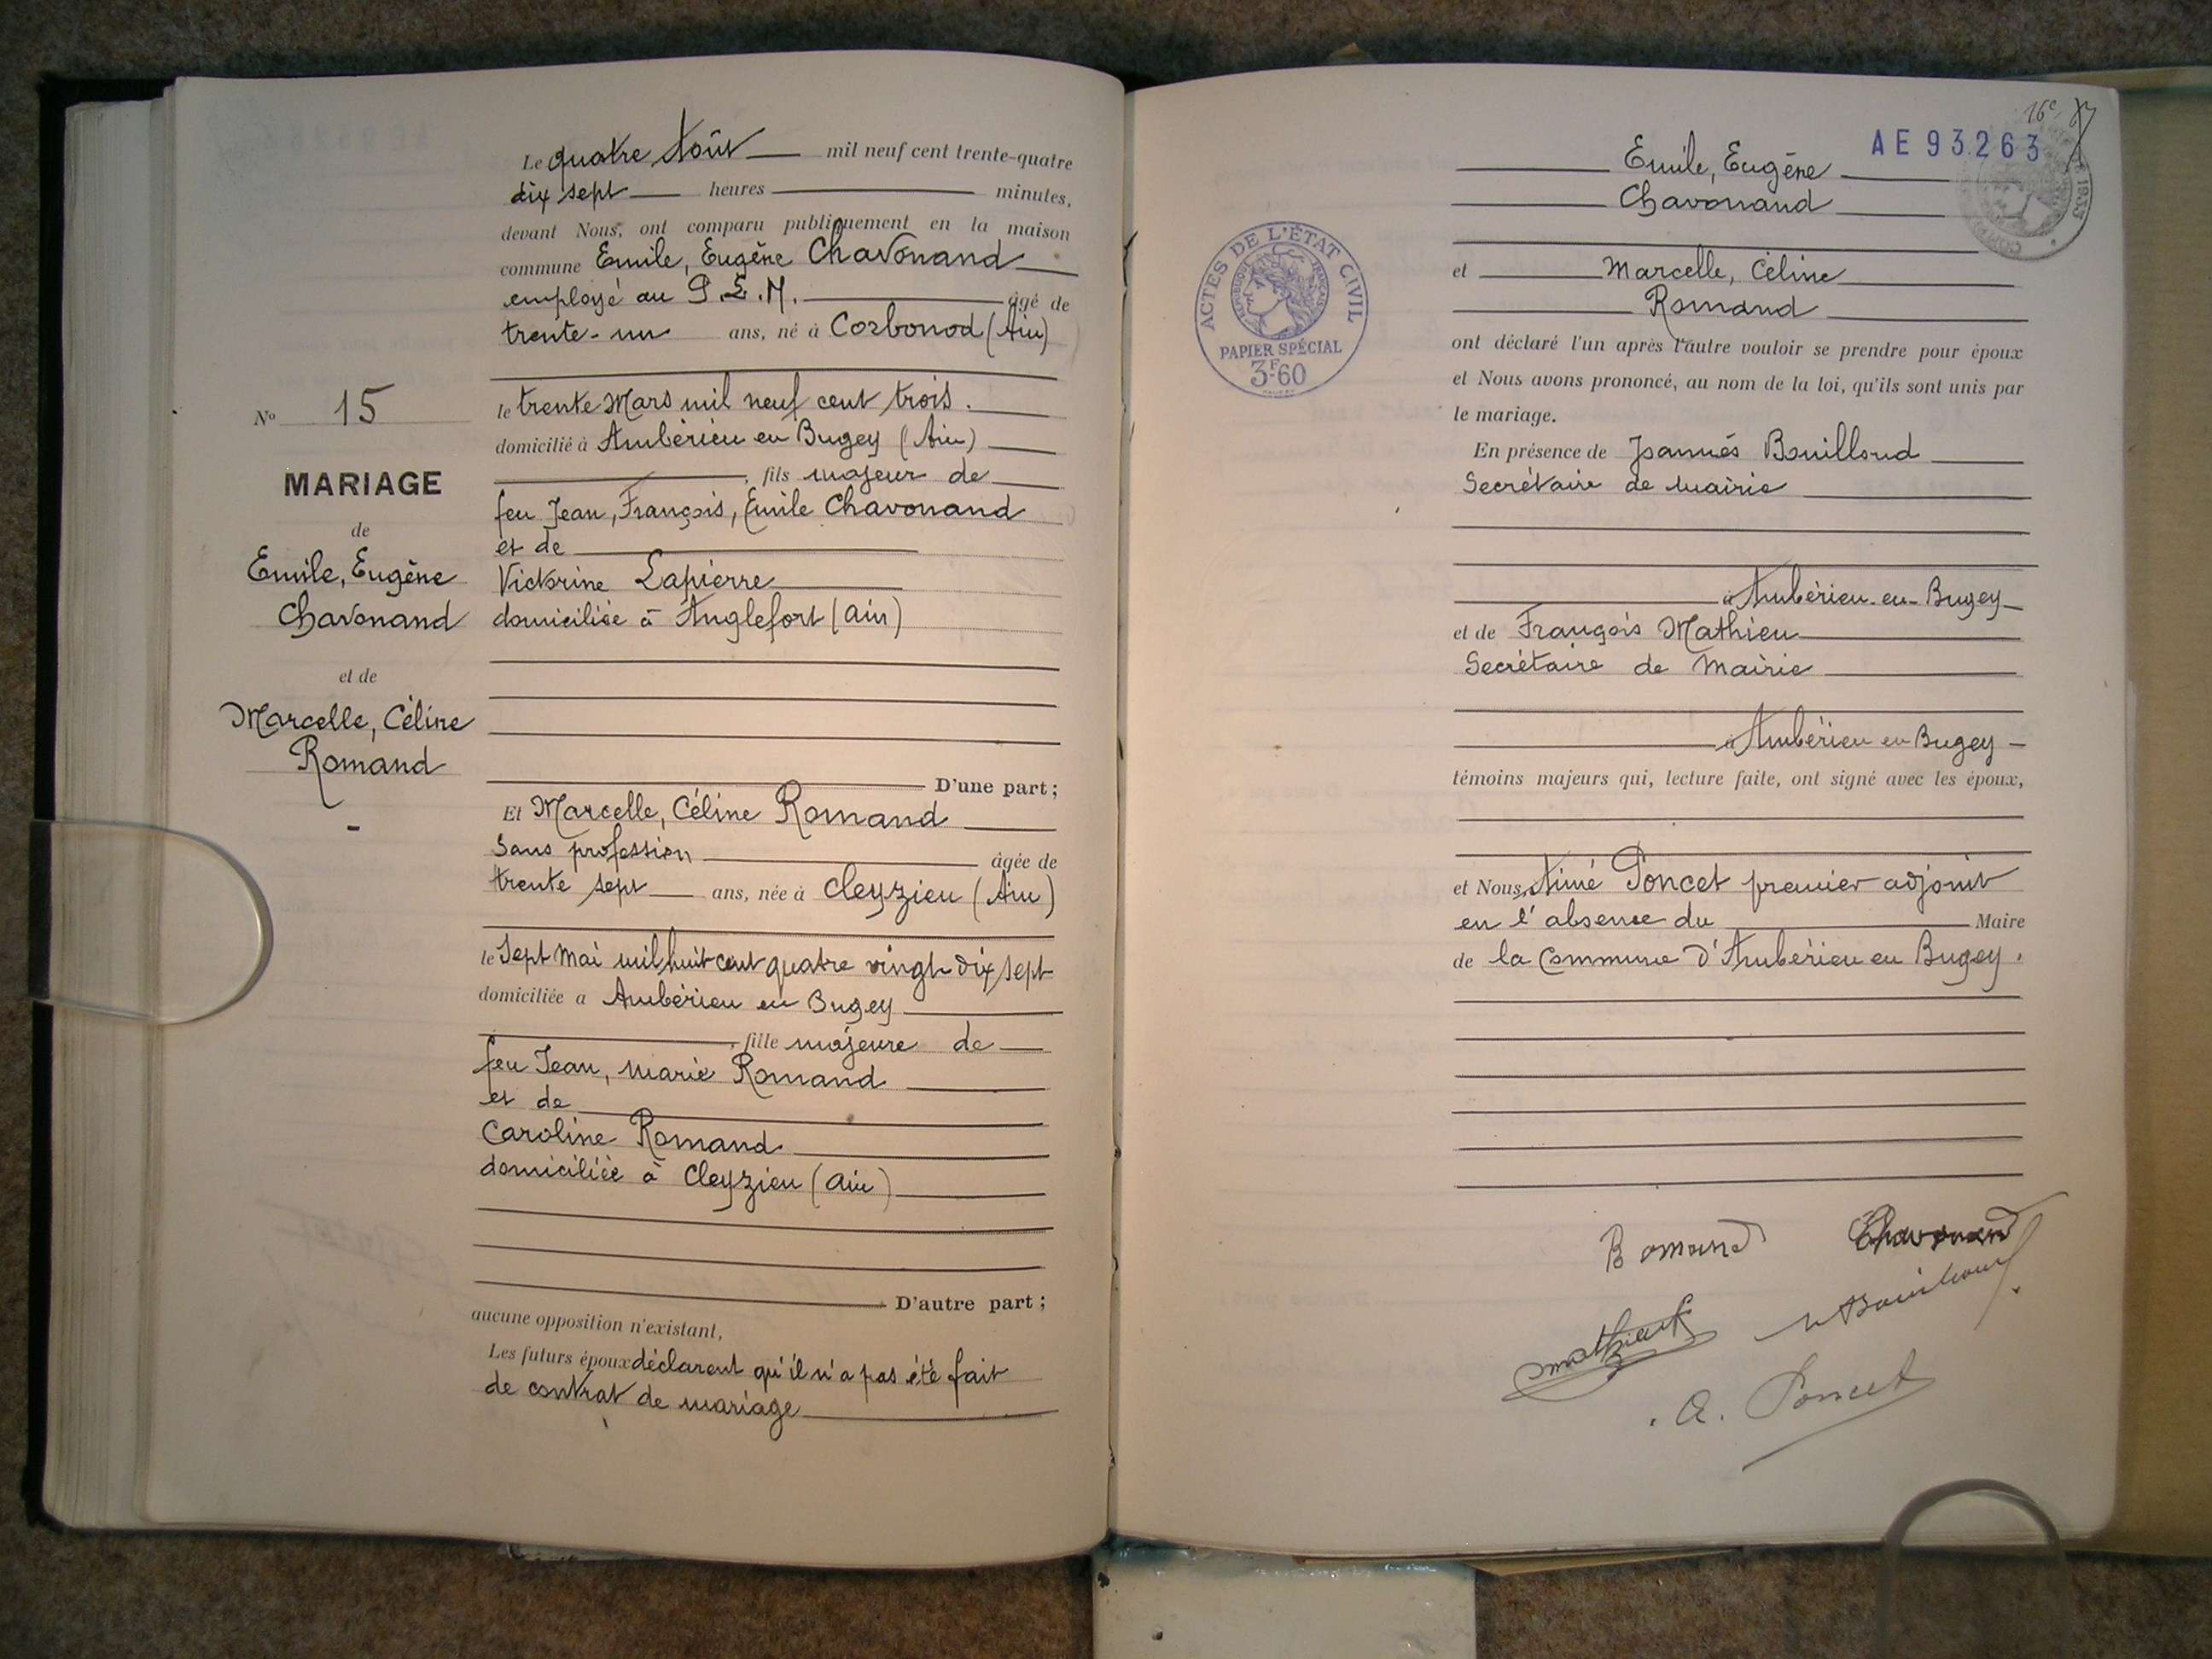 N° 15
MARIAGE
de
Emile, Eugène
Chavonand
et de
Marcelle, Céline
Romand
Le quatre Août mil neuf cent trente-quatre
dix sept heures minutes,
devant Nous, ont comparu publiquement en la maison
commune Emile, Eugène Chavonand
employé au P.L.M. âgé de
trente-un ans, né à Corbonod (Ain)
le trente Mars mil neuf cent trois.
domicilié à Ambérieu en Bugey (Ain)
, fils majeur de
feu Jean, François, Emile Chavonand
et de
Victorine Lapierre
domiciliée à Anglefort (Ain)
D'une part ;
Et Marcelle, Céline Romand
Sans profession âgée de
trente sept ans, née à Cleyzieu (Ain)
le Sept Mai mil huit cent quatre vingt dix sept
domiciliée a Ambérieu en Bugey
, fille majeure de
feu Jean, Marie Romand
et de
Caroline Romand
domiciliée à Cleyzieu (Ain)
D'autre part ;
aucune opposition n'existant,
Les futurs époux déclarent qu'il n'a pas été fait
de contrat de mariage
16e
AE 93263
1933
ACTES DE L'ÉTAT CIVIL
RÉPUBLIQUE FRANÇAISE
PAPIER SPÉCIAL
3F60
Emile, Eugène
Chavonand
et Marcelle, Céline
Romand
ont déclaré l'un après l'autre vouloir se prendre pour époux
et Nous avons prononcé, au nom de la loi, qu'ils sont unis par
le mariage.
En présence de Joannès Bouilloud
Secrétaire de Mairie
à Ambérieu-en-Bugey
et de François Mathieu
Secrétaire de Mairie
à Ambérieu en Bugey
témoins majeurs qui, lecture faite, ont signé avec les époux,
et Nous, Aimé Poncet premier adjoint
en l'absence du Maire
de la Commune d'Ambérieu en Bugey.
Romand Chavonand
Mathieu Bouilloud
A. Poncet